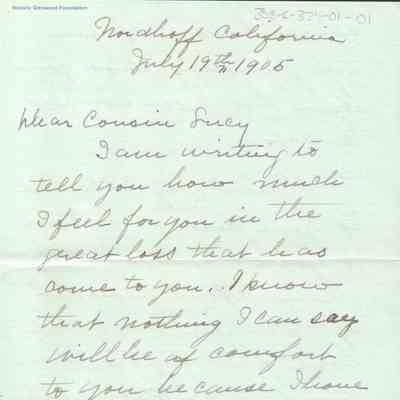 Historic Glenwood Foundation
Nordhoff California
July 19th 1905
Dear Cousin Lucy
I am writing to
tell you how much
I feel for you in the
great loss that has
come to you. I know
that nothing I can say
will be of comfort
to you because I have